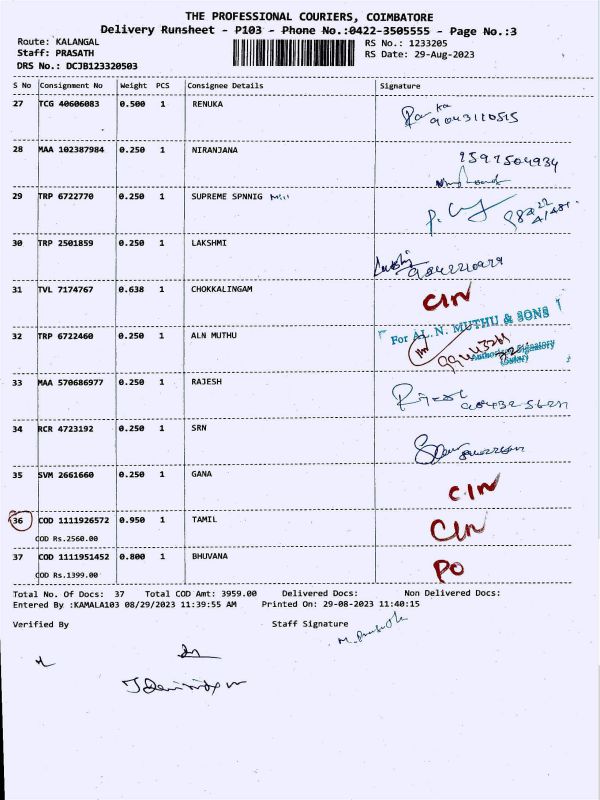 THE PROFESSIONAL COURIERS, COIMBATORE
Delivery Runsheet - P103 - Phone No.:0422-3505555 - Page No.:3
Route: KALANGAL RS No.: 1233205
Staff: PRASATH RS Date: 29-Aug-2023
DRS No.: DCJB123320503
S No Consignment No Weight PCS Consignee Details Signature
27 TCG 40606083 0.500 1 RENUKA
9043110515
28 MAA 102387984 0.250 1 NIRANJANA
29 TRP 6722770 0.250 1 SUPREME SPNNIG Mill
30 TRP 2501859 0.250 1 LAKSHMI
31 TVL 7174767 0.638 1 CHOKKALINGAM CIN
32 TRP 6722460 0.250 1 ALN MUTHU For AL. N. MUTHU & SONS
Authorised Signatory
33 MAA 570686977 0.250 1 RAJESH
34 RCR 4723192 0.250 1 SRN
35 SVM 2661660 0.250 1 GANA CIN
36 COD 1111926572 0.950 1 TAMIL CIN
COD Rs.2560.00
37 COD 1111951452 0.800 1 BHUVANA PO
COD Rs.1399.00
Total No. Of Docs: 37 Total COD Amt: 3959.00 Delivered Docs: Non Delivered Docs:
Entered By :KAMALA103 08/29/2023 11:39:55 AM Printed On: 29-08-2023 11:40:15
Verified By Staff Signature